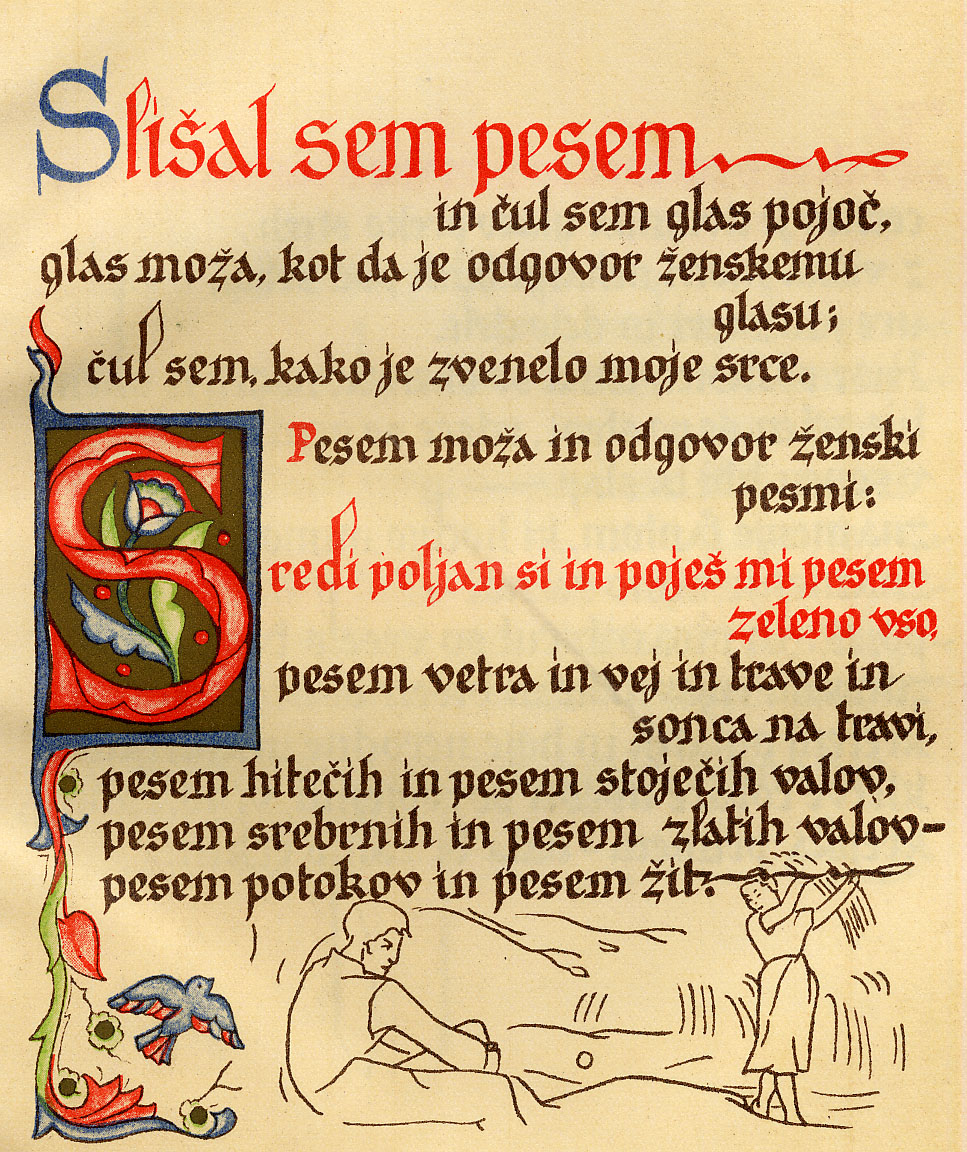 Slišal sem pesem
in čul sem glas pojoč,
glas moža, kot da je odgovor ženskemu
glasu;
čul sem, kako je zvenelo moje srce.
Pesem moža in odgovor ženski
pesmi:
Sredi poljan si in poješ mi pesem
zeleno vso,
pesem vetra in vej in trave in
sonca na travi,
pesem hitečih in pesem stoječih valov,
pesem srebrnih in pesem zlatih valov-
pesem potokov in pesem žit.